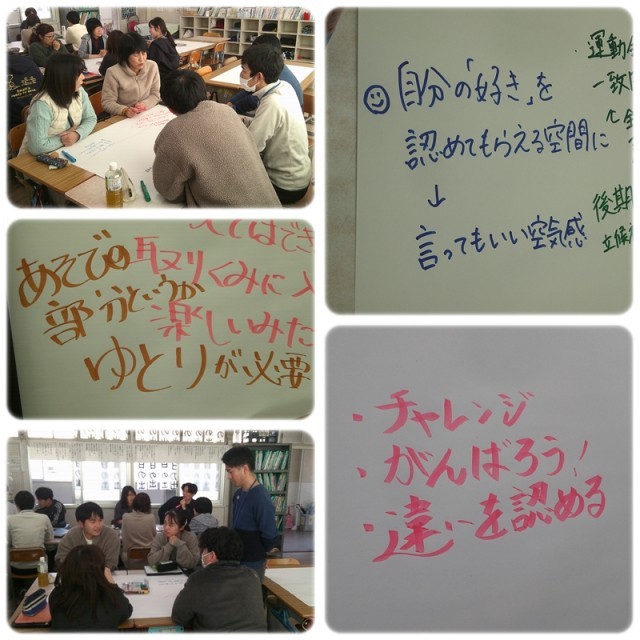 自分の「好き」を
認めてもらえる空間に
↓
言ってもいい空気感
・運動
一致
後期
立候
てはでき
あそびの
取りくみに入
部分というか
楽しいみた
ゆとりが必要
・チャレンジ
・がんばろう!
・違いを認める